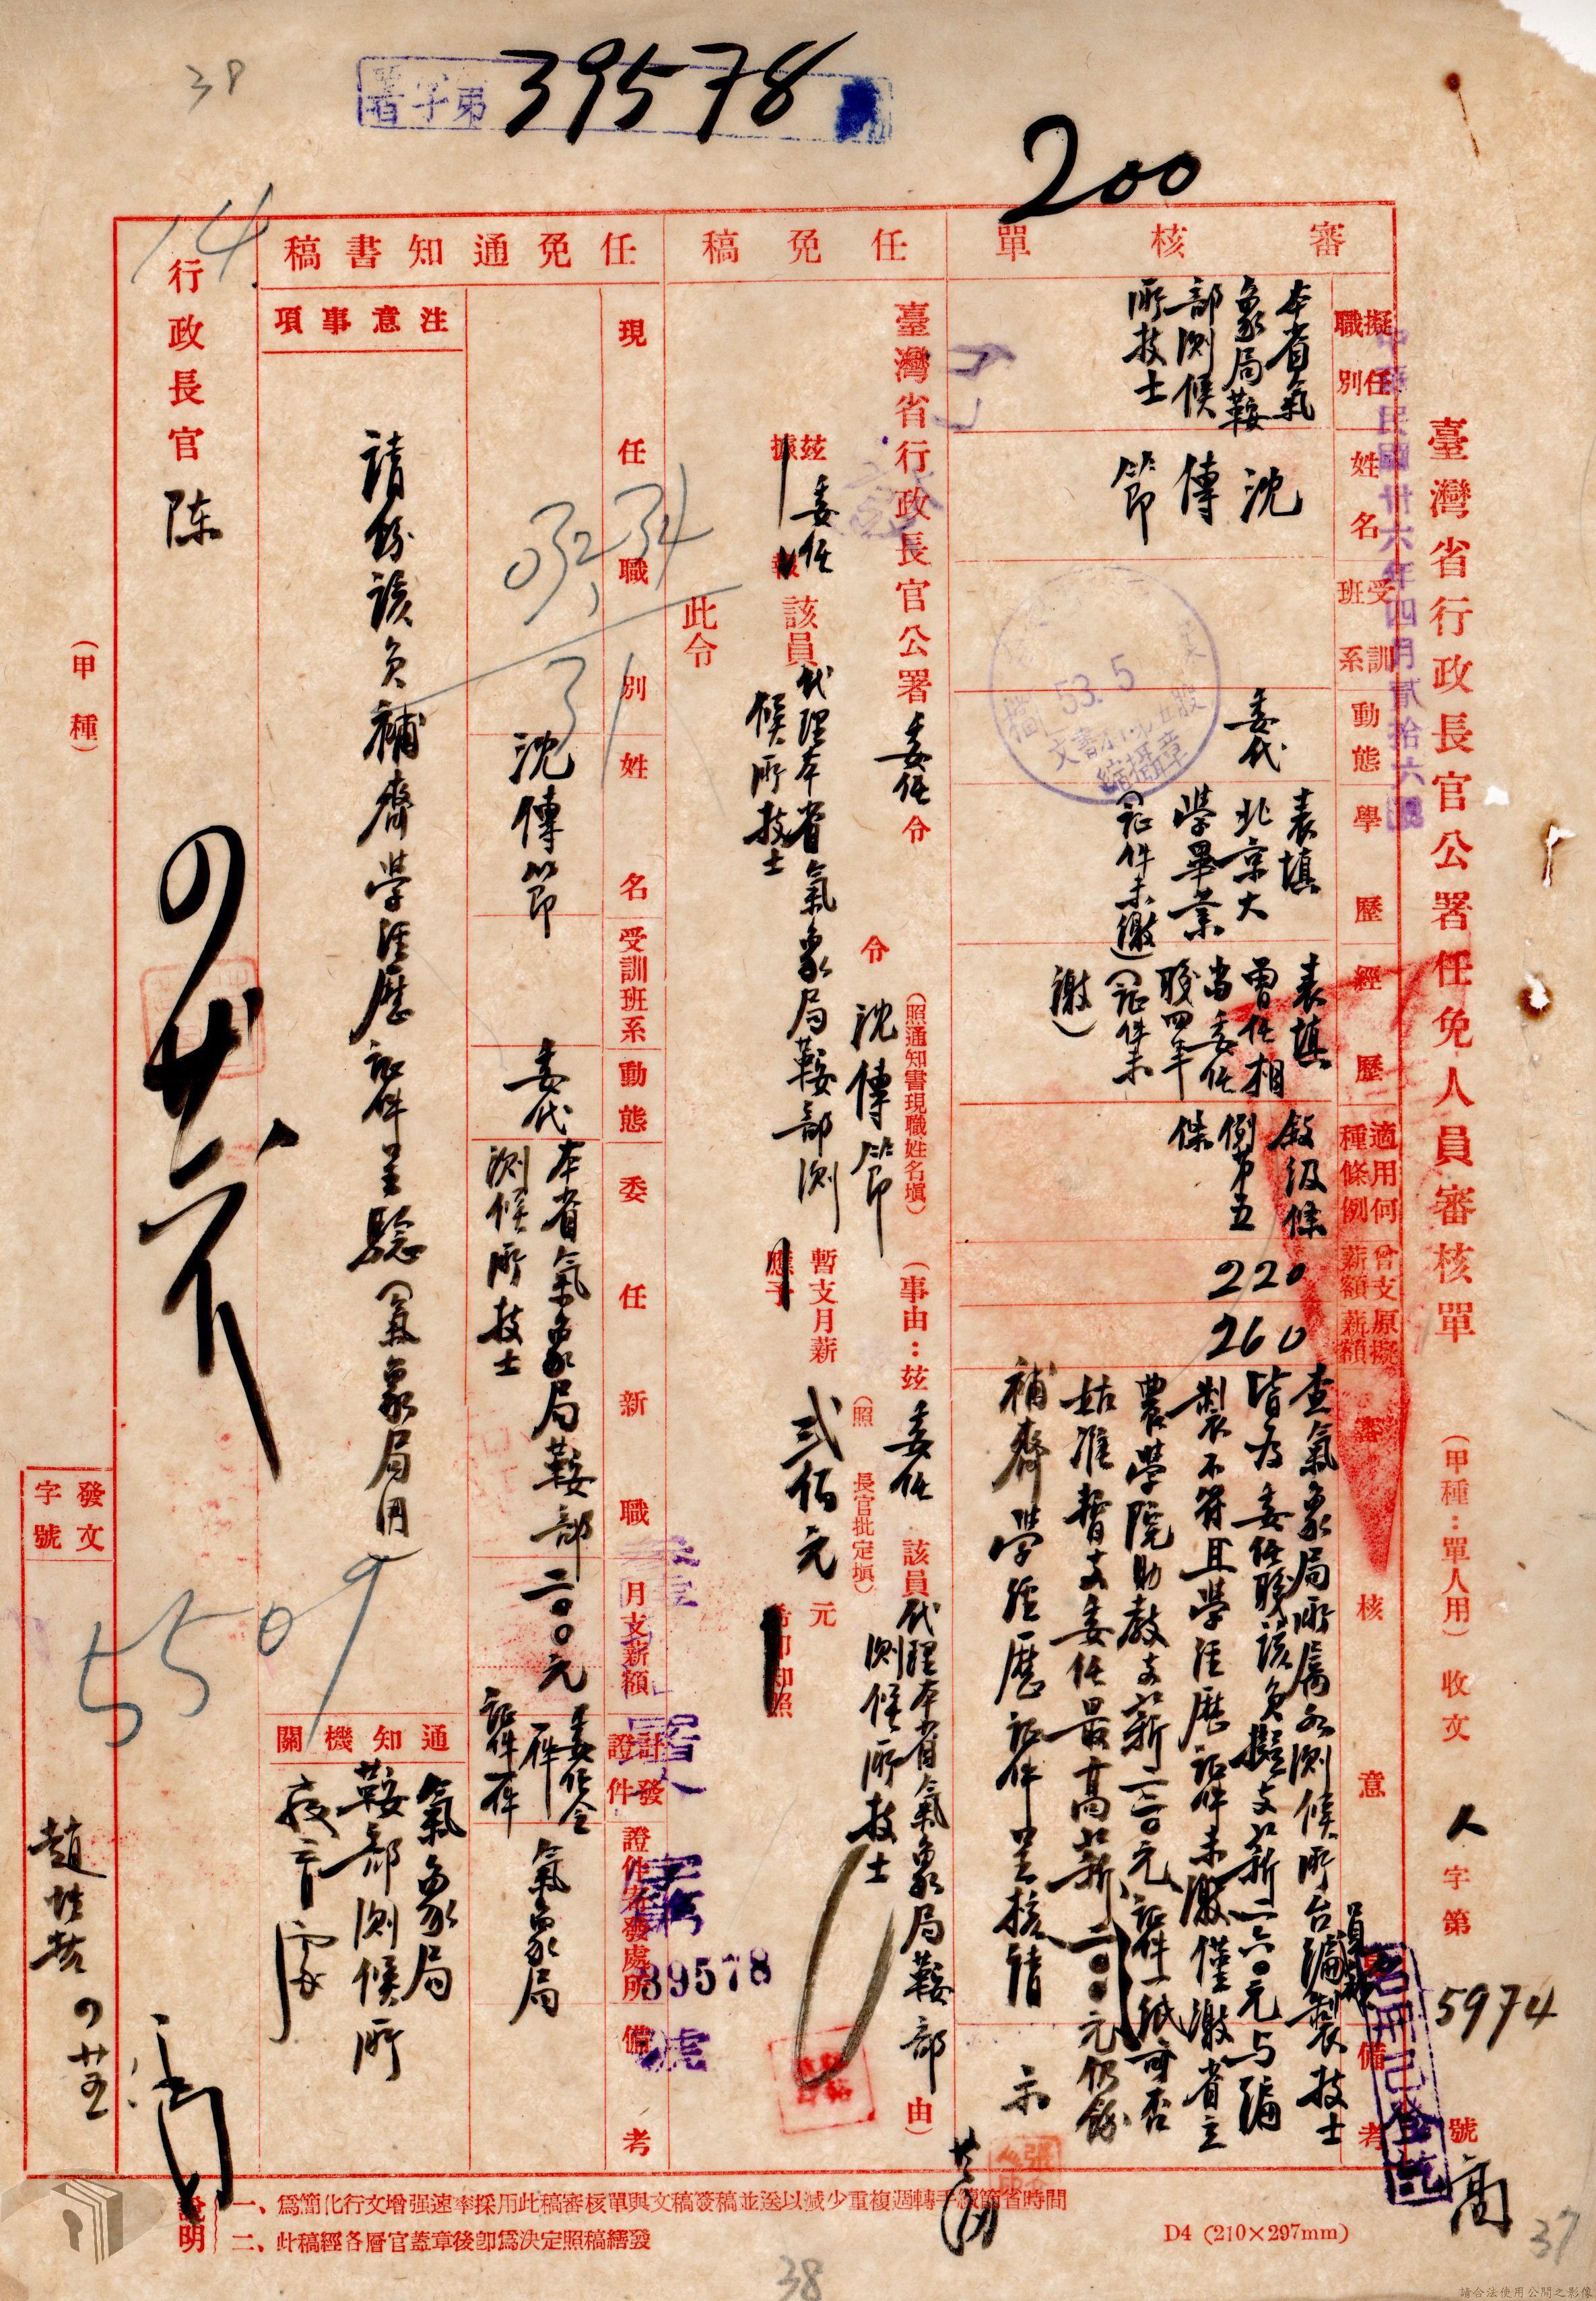 39578
署字第
38
200
臺灣省行政長官公署任免人員審核單
(甲種:單人用)
收文
人字第5974號
中華民國卅六年四月貳拾六日
審核單
擬任職別
本省氣
象局鞍
部測候
所技士
姓名
沈
傳
節
受訓班系
動態
委代
學歷
表填
北京大
學畢業
(証件未繳)
經歷
表填
曾任相
當委任
職四年
(証件未
繳)
適用何種條例
敍級條
例第五
條
曾支薪額
220
原擬薪額
260
審核意見
查氣象局所屬各測候所台編製技士
皆為委任職該員擬支薪二六〇元与編
製不符且學經歷証件未繳僅繳省立
農學院助教支薪二二〇元証件一紙可否
姑准暫支委任最高薪二〇〇元仍飭
補齊學經歷証件呈核請
示
備考
任免稿
臺灣省行政長官公署委任令
令 沈傳節
(照通知書現職姓名填)
(事由:茲委任該員代理本省氣象局鞍部
測候所技士
由)
茲委任該員代理本省氣象局鞍部測
候所技士
暫支月薪
貳佰元
元
(照 長官批定填)
此令
53.5
縮攝章
39578
任免通知書稿
現任職別
姓名
沈傳節
受訓班系
動態
委代
委任新職
本省氣象局鞍部
測候所技士
月支薪額
二〇〇元
計發證件
委任令
一件
証件一件
證件存發處所
氣象局
備考
注意事項
請飭該員補齊學經歷証件呈驗(氣象局用
通知機關
氣象局
鞍部測候所
行政長官 陈
(甲種)
14
5509
發文字號
說明
一、爲簡化行文增强速率採用此稿審核單與文稿簽稿並送以減少重複週轉手續節省時間
二、此稿經各層官蓋章後卽爲決定照稿繕發
D4 (210×297mm)
37
38
請合法使用公開之影像